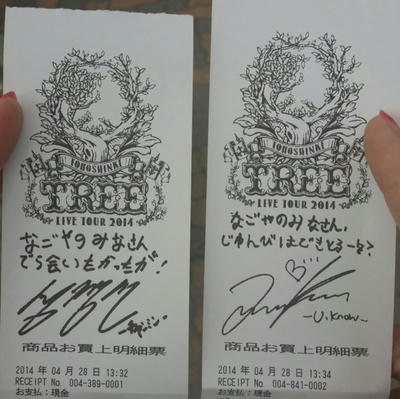 TOHOSHINKI
TREE
LIVE TOUR 2014
なごやのみなさん
でら会いたかったが!
商品お買上明細票
2014 年 04 月 28 日 13:32
RECEIPT No. 004-389-0001
お支払:現金
TOHOSHINKI
TREE
LIVE TOUR 2014
なごやのみなさん、
じゅんびはできとるーな?
-U.Know-
商品お買上明細票
2014 年 04 月 28 日 13:34
RECEIPT No. 004-841-0002
お支払:現金